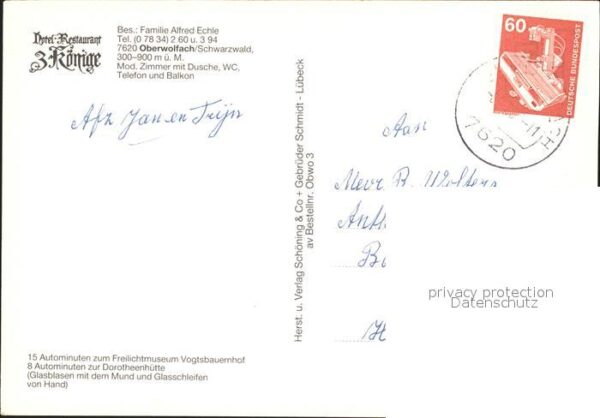 Hotel-Restaurant
3 Könige
Bes.: Familie Alfred Echle
Tel. (0 78 34) 2 60 u. 3 94
7620 Oberwolfach/Schwarzwald,
300–900 m ü. M.
Mod. Zimmer mit Dusche, WC,
Telefon und Balkon
Afz Jan en Trijn
60
DEUTSCHE BUNDESPOST
7620
Herst. u. Verlag Schöning & Co + Gebrüder Schmidt - Lübeck
av Bestellnr. Obwo 3
Aan
Mevr B. Wolters
Anth
privacy protection
Datenschutz
15 Autominuten zum Freilichtmuseum Vogtsbauernhof
8 Autominuten zur Dorotheenhütte
(Glasblasen mit dem Mund und Glasschleifen
von Hand)